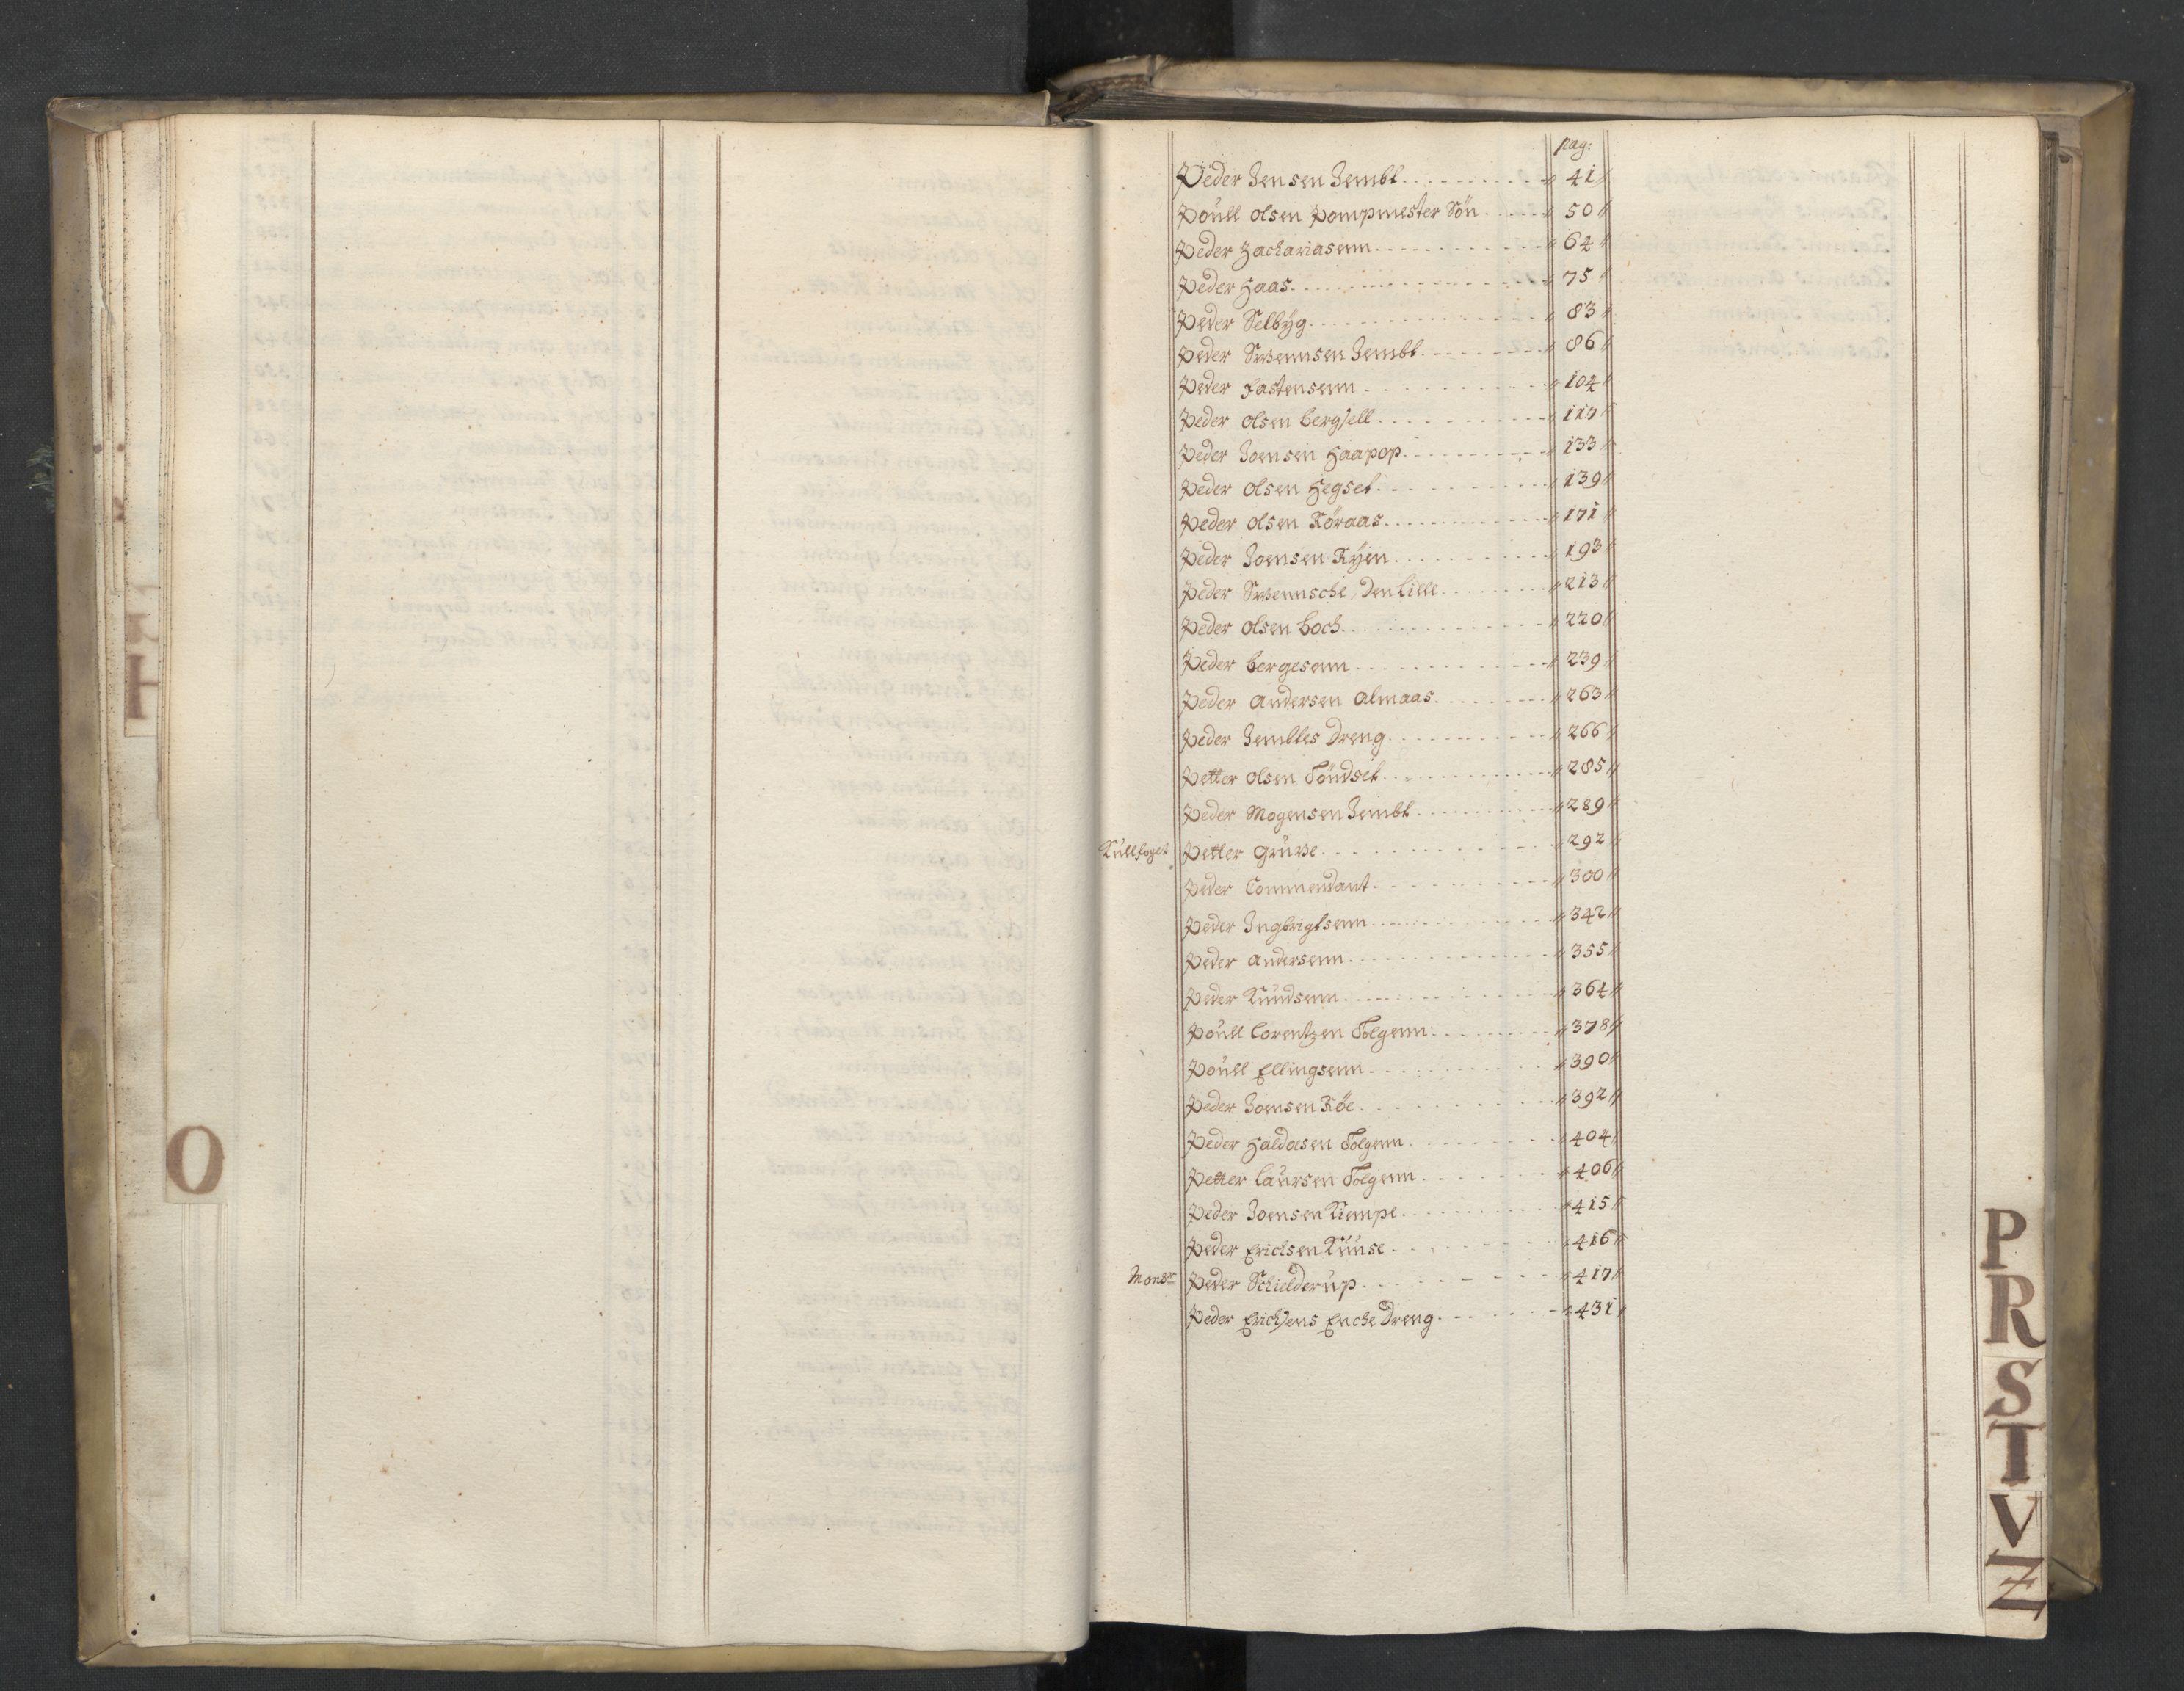 O
pag:
Peder Jensen Jembt . . . . . . . . . . 41
Poüll olsen Pompmester Sön . . . . . 50
Peder Zachariasenn . . . . . . . . . . 64
Peder Haas . . . . . . . . . . . . . . 75
Peder Selbÿg . . . . . . . . . . . . . 83
Peder Swennsen Jembt . . . . . . . . . 86
Peder Fastensenn . . . . . . . . . . . 104
Peder olsen bergsell . . . . . . . . . 117
Peder Joensen Haapop . . . . . . . . . 133
Peder olsen Hegset . . . . . . . . . . 139
Peder olsen Röraas . . . . . . . . . . 171
Peder Joensen Rÿen . . . . . . . . . . 193
Peder Swennsche, Den Lille . . . . . . 213
Peder olsen boch . . . . . . . . . . . 220
Peder bergesenn . . . . . . . . . . . 239
Peder andersen almaas . . . . . . . . 263
Peder Jembtes Dreng . . . . . . . . . 266
Petter olsen Töndset . . . . . . . . . 285
Peder Mogensen Jembt . . . . . . . . . 289
Küllfoget Petter Grüwe . . . . . . . . 292
Peder Commendant . . . . . . . . . . . 300
Peder Ingbrigtsenn . . . . . . . . . . 342
Peder andersenn . . . . . . . . . . . 355
Peder Knüdsenn . . . . . . . . . . . . 364
Poüll Lorentzen Tolgenn . . . . . . . 378
Poüll Ellingsenn . . . . . . . . . . . 390
Peder Joensen Röe . . . . . . . . . . 392
Peder Haldoesen Tolgenn . . . . . . . 404
Petter Laürsen Tolgenn . . . . . . . . 406
Peder Joensen Kiempe . . . . . . . . . 415
Peder Erichsen Küüse . . . . . . . . . 416
Monsr Peder Schielderüp . . . . . . . 417
Peder Erichsens Enche Dreng . . . . . 431
P
R
S
T
V
Z